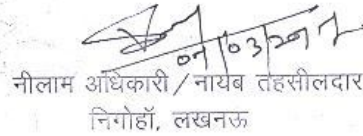 07/03/2017
नीलाम अधिकारी / नायब तहसीलदार
निगोहॉ, लखनऊ